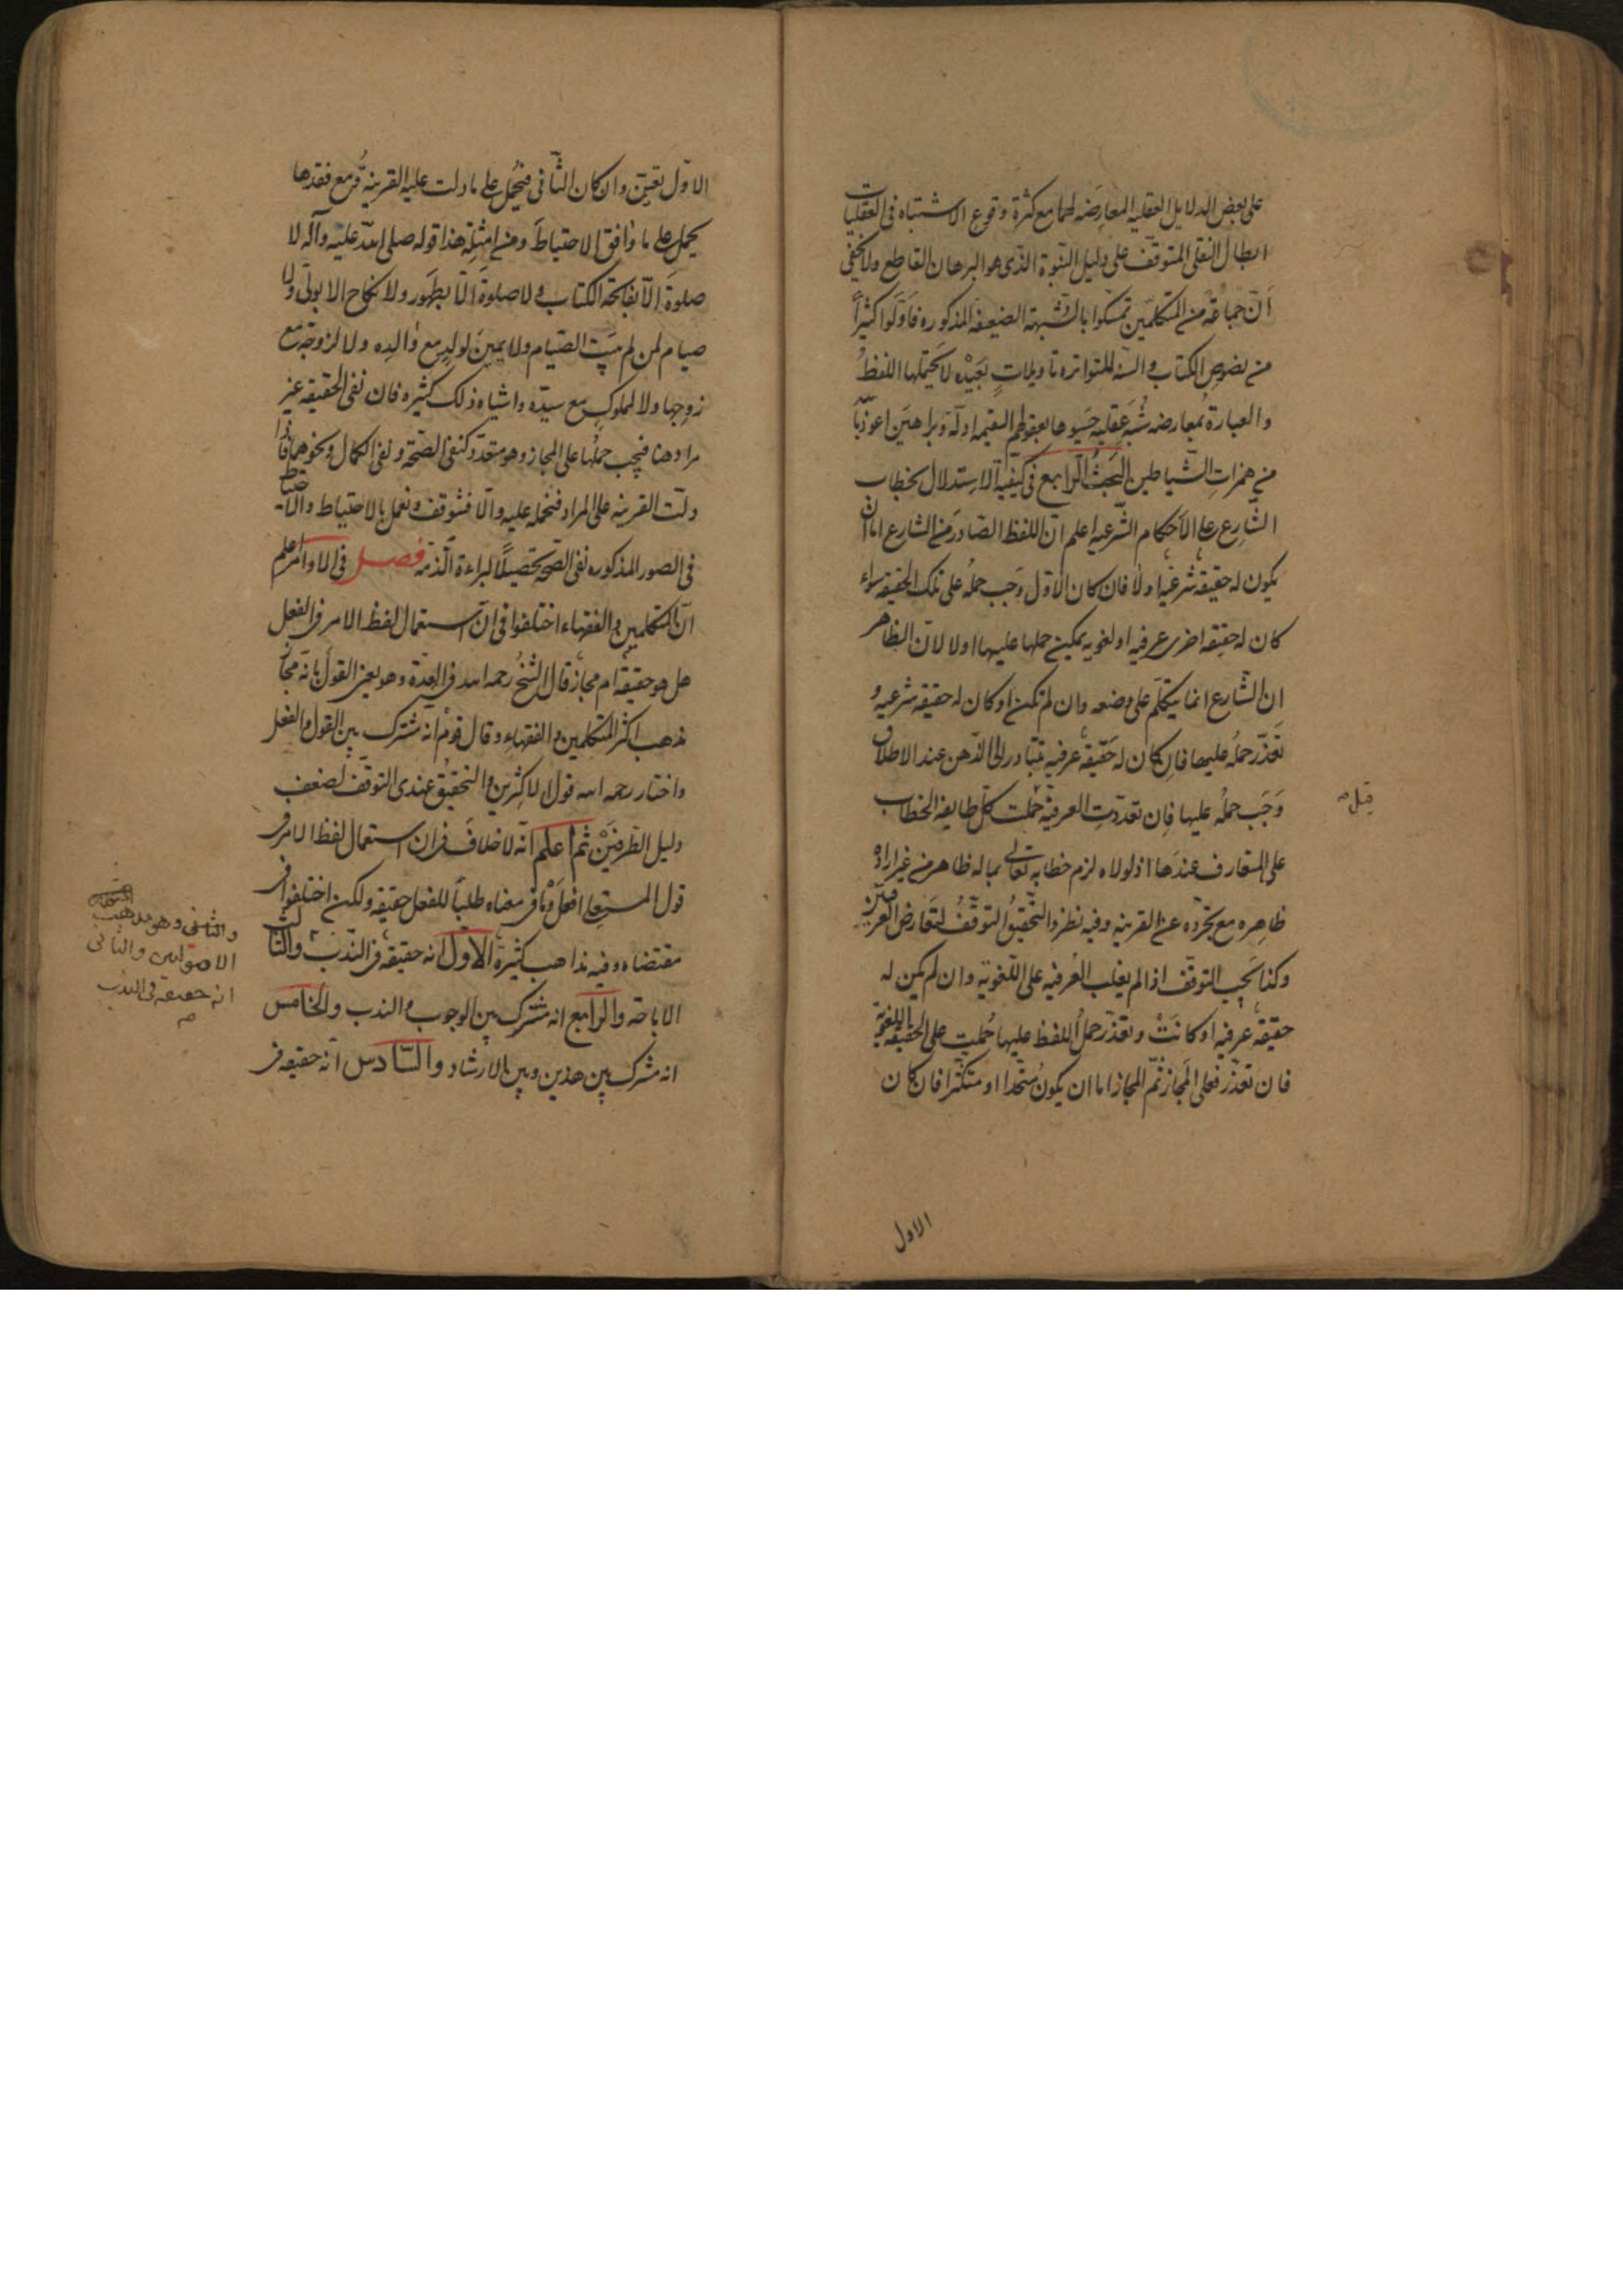 على بعض الدلايل العقليه المعارضه لهما مع كثرة وقوع الاشتباه فى العقليات
ابطال النقلى المتوقف على دليل النبوة الذى هو البرهان القاطع ولا يخفى
أنّ جماعة من المتكلمين تمسكوا بالشبهة الضعيفه المذكوره فأوّلوا كثيراً
من نصوص الكتاب والسنه المتواتره تأويلاتٍ بعيده لا يحتملها اللفظ
والعبارة بمعارضه شبه عقليه حسبوها بعقولهم السقيمه ادلّة وبراهين اعوذ بالله
من همزات الشياطين البحث الرابع فى كيفية الاستدلال بخطاب
الشارع على الاحكام الشرعيه اعلم ان اللفظ الصادر من الشارع اما ان
يكون له حقيقة شرعية اولا فان كان الاول وجب حمله على تلك الحقيقه سواء
كان له حقيقه اخرى عرفيه او لغويه يمكن حملها عليهما اولا لان الظاهر
ان الشارع انما يتكلم على وضعه وان لم تكن او كان له حقيقه شرعيه و
تعذر حمله عليها فان كان له حقيقة عرفية تتبادر الى الذهن عند الاطلاق
وجب حمله عليها فان تعددت العرفية حملت كل طايفه الخطاب
قيل صح
على المتعارف عندها اذ لولاه لزم خطابه تعالى بما له ظاهر من غير ارادة
ظاهره مع تجرده عن القرينه وفيه نظر والتحقيق التوقف لتعارض العرفين
وكذا يجب التوقف اذا لم يغلب العرفيه على اللغوية وان لم يكن له
حقيقة عرفيه او كانت وتعذر حمل اللفظ عليها حملت على الحقيقة اللغوية
فان تعذر فعلى المجاز ثم المجاز اما ان يكون متحدا او متكثرا فان كان
الاول
الاول تعين وان كان الثانى فيحمل على ما دلت عليه القرينه ثم مع فقدها
يحمل على ما وافق الاحتياط ومن امثلة هذا قوله صلى الله عليه وآله لا
صلوة إلا بفاتحة الكتاب ولا صلوة الا بطهور ولا نكاح الا بولى ولا
صيام لمن لم يبيت الصيام ولا يمين لولد مع والده ولا لزوجة مع
زوجها ولا لمملوك مع سيده واشباه ذلك كثيره فان نفى الحقيقه غير
مراد هنا فيجب حملها على المجاز وهو متعدد كنفى الصحة ونفى الكمال ونحوهما فاذا
دلت القرينه على المراد فتحمله عليه والا فنتوقف ونعمل بالاحتياط والاحتياط
فى الصور المذكوره نفى الصحه تحصيلاً لبراءة الذمه فصل فى الاوامر اعلم
ان المتكلمين والفقهاء اختلفوا فى ان استعمال لفظ الامر فى الفعل
هل هو حقيقة ام مجاز قال الشيخ رحمه الله فى العدة وهو يعنى القول بانه مجاز
مذهب اكثر المتكلمين والفقهاء وقال قوم انه مشترك بين القول والفعل
واختار رحمه الله قول الاكثرين والتحقيق عندى التوقف لضعف
دليل الطرفين ثم اعلم انه لا خلاف فى ان استعمال لفظ الامر فى
قول المستعلى افعل وما فى معناه طلبا للفعل حقيقه ولكن اختلفوا فى
مقتضاه وفيه مذاهب كثيرة الاول انه حقيقة فى الندب والثالث
الاباحة والرابع انه مشترك بين الوجوب والندب والخامس
انه مشترك بين هذين وبين الارشاد والسادس انه حقيقه فى
والثانى وهو مذهب
الاصوليين والثانى
انه حقيقة فى الندب
صح